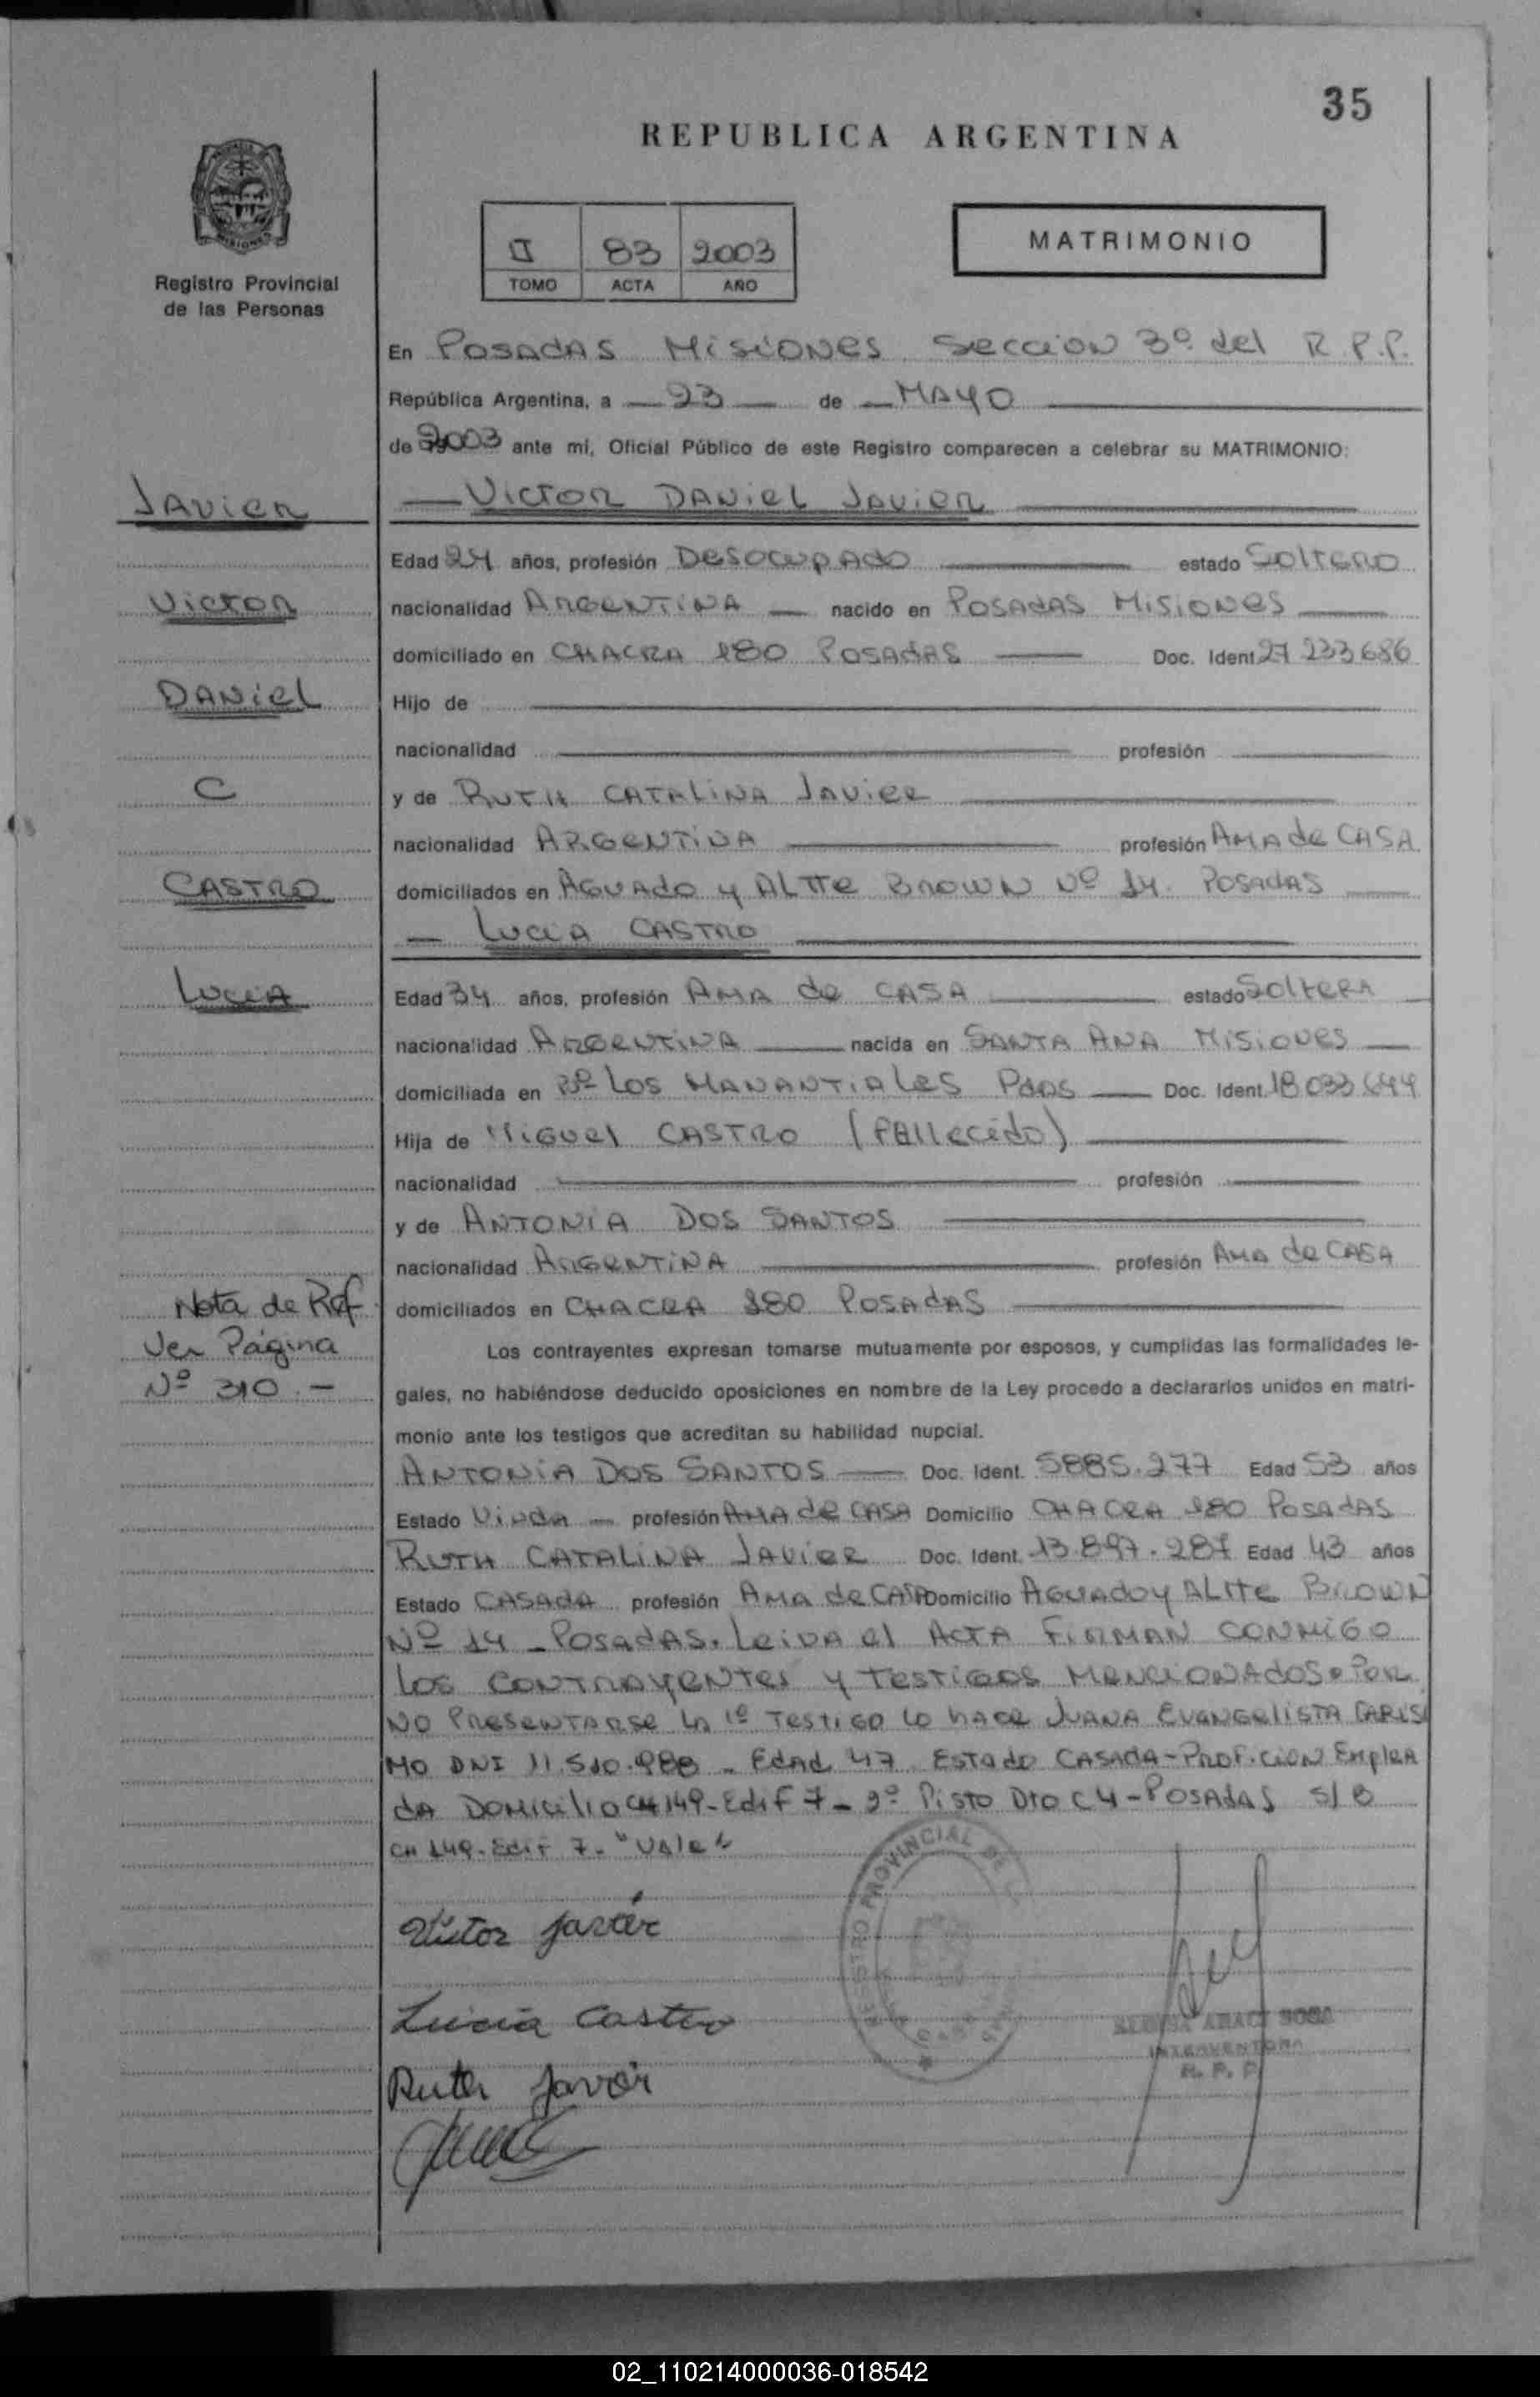 35
REPUBLICA ARGENTINA
MISIONES
Registro Provincial
de las Personas
II 83 2003
TOMO ACTA AÑO
MATRIMONIO
En POSADAS MISIONES Seccion 3º del R.P.P.
República Argentina, a 23 de MAYO
de 2003 ante mí, Oficial Público de este Registro comparecen a celebrar su MATRIMONIO:
JAVIER
VICTOR DANIEL JAVIER
Edad 24 años, profesión DESOCUPADO estado SOLTERO
VICTOR
nacionalidad ARGENTINA nacido en POSADAS MISIONES
domiciliado en CHACRA 180 POSADAS Doc. Ident 27 233 686
DANIEL
Hijo de
nacionalidad profesión
C
y de RUTH CATALINA JAVIER
nacionalidad ARGENTINA profesión AMA de CASA
CASTRO
domiciliados en AGUADO y ALTTE BROWN Nº 14. POSADAS
LUCIA CASTRO
LUCIA
Edad 34 años, profesión AMA de CASA estado SOLTERA
nacionalidad ARGENTINA nacida en SANTA ANA MISIONES
domiciliada en Bº LOS MANANTIALES Pdas Doc. Ident. 18 033 644
Hija de MIGUEL CASTRO (FALLECIDO)
nacionalidad profesión
y de ANTONIA DOS SANTOS
nacionalidad ARGENTINA profesión AMA de CASA
Nota de Ref
Ver Página
Nº 310.-
domiciliados en CHACRA 180 POSADAS
Los contrayentes expresan tomarse mutuamente por esposos, y cumplidas las formalidades le-
gales, no habiéndose deducido oposiciones en nombre de la Ley procedo a declararlos unidos en matri-
monio ante los testigos que acreditan su habilidad nupcial.
ANTONIA DOS SANTOS Doc. Ident. 5885.277 Edad 53 años
Estado Viuda profesión AMA de CASA Domicilio CHACRA 180 POSADAS
RUTH CATALINA JAVIER Doc. Ident. 13.897.287 Edad 43 años
Estado CASADA profesión AMA de CASA Domicilio AGUADO y ALTTE BROWN
Nº 14 - POSADAS. Leida el ACTA FIRMAN CONMIGO
LOS CONTRAYENTES y TESTIGOS MENCIONADOS. POR
NO PRESENTARSE la 1º TESTIGO lo hace JUANA EVANGELISTA CARISI
MO DNI 11.510.988 - EDAD 47 ESTADO CASADA - PROF.CION EMPLEA
DA DOMICILIO CH 149 - Edif 7 - 2º PISTO Dto C4 - POSADAS S/B
CH 149 - Edif 7. "VALE"
Victor Javier
Lucia Castro
Ruth Javier
REGISTRO PROVINCIAL DE
ARACI SOSA
INTERVENTORA
R. P. P.
02_110214000036-018542